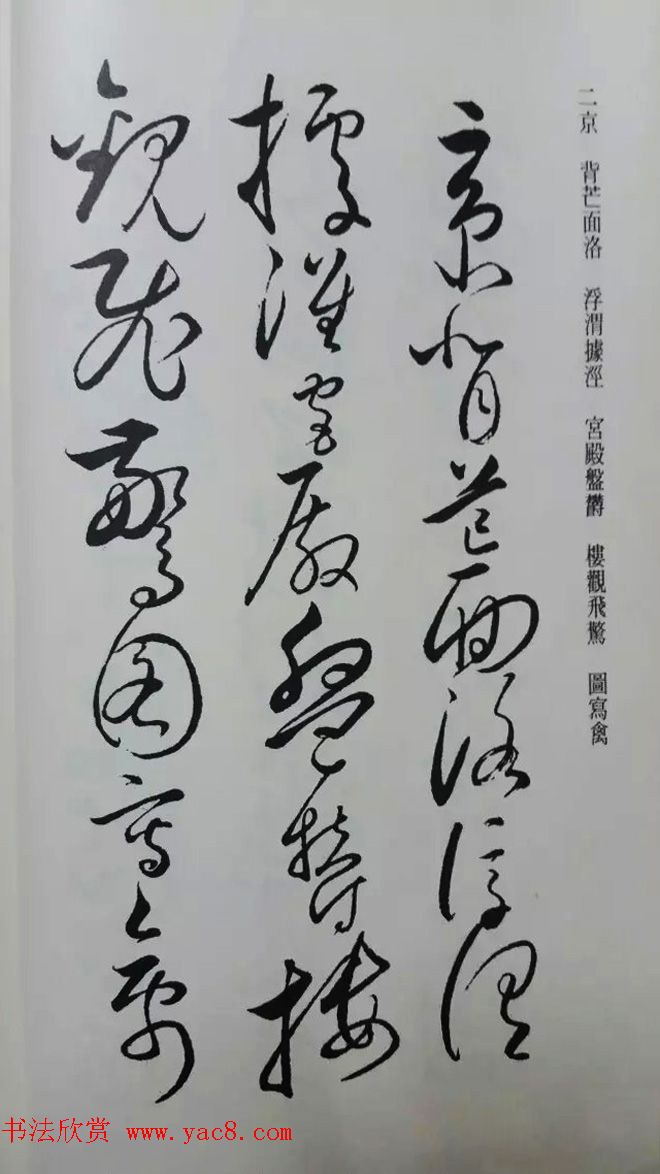 二京 背芒面洛 浮渭據涇 宮殿盤鬱 樓觀飛驚 圖寫禽
京背芒面洛浮渭
據涇宮殿盤鬱樓
觀飛驚圖寫禽
书法欣赏 www.yac8.com